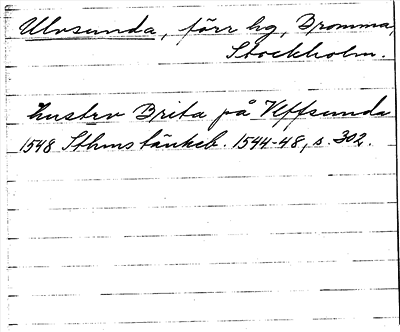 Ulvsunda, förr hg, Bromma,
Stockholm.
hustrv Brita på Vlffsunda
1548 Sthms tänkeb. 1544-48, s. 302.